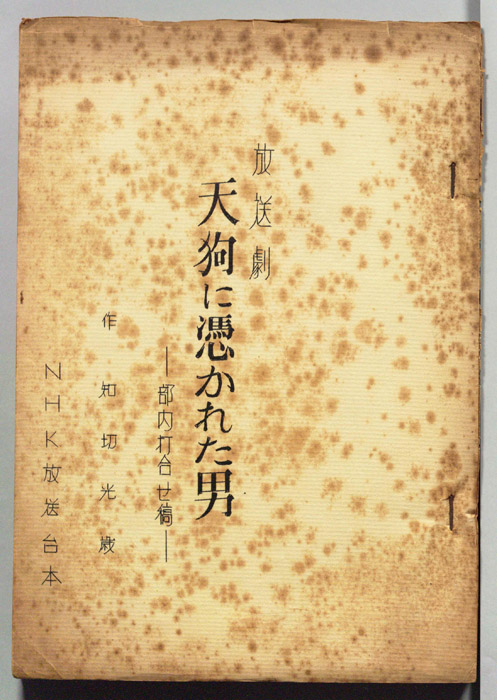 放送劇
天狗に憑かれた男
―部内打合せ稿―
作 知切光歳
NHK放送台本